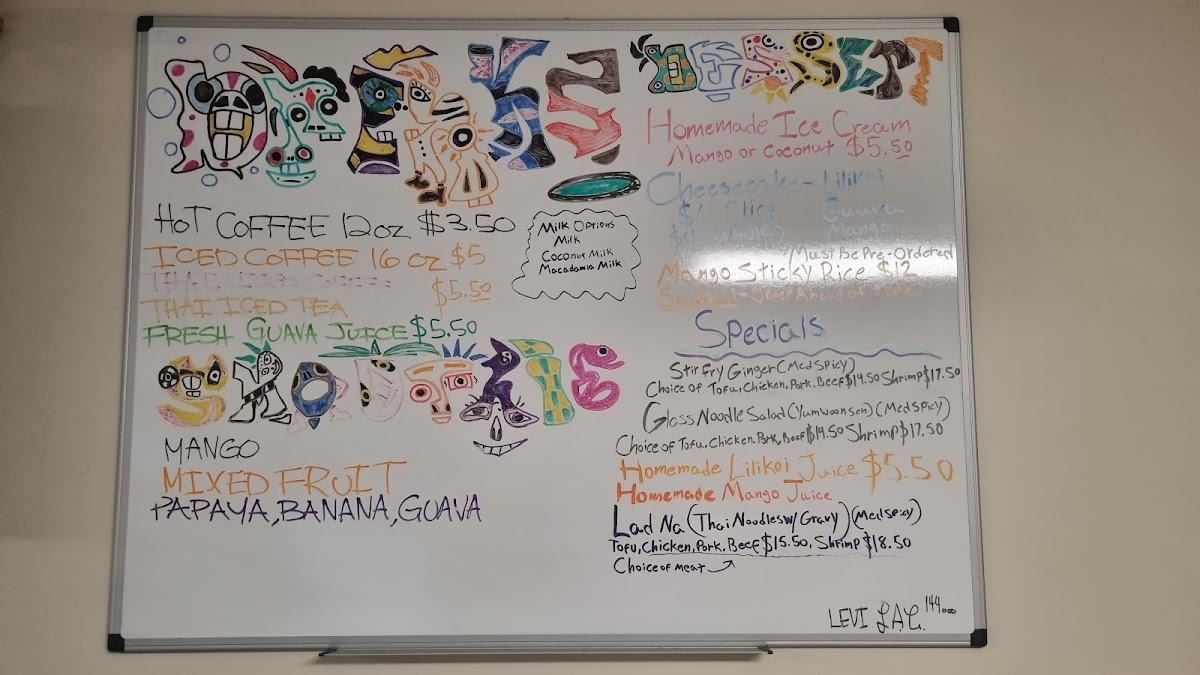 DRINKS
HOT COFFEE 12oz $3.50
ICED COFFEE 16 oz $5
THAI ICED COFFEE
$5.50
THAI ICED TEA
FRESH GUAVA JUICE $5.50
Milk Options
Milk
Coconut Milk
Macadamia Milk
SMOOTHIE
MANGO
MIXED FRUIT
PAPAYA, BANANA, GUAVA
DESSERT
Homemade Ice Cream
Mango or Coconut $5.50
Cheesecake - Lilikoi
Slice Guava
Whole) Mango
Must be Pre-Ordered
Mango Sticky Rice $12
Seasonal - Order Ahead of time
Specials
Stir Fry Ginger (Med Spicy)
Choice of Tofu, Chicken, Pork, Beef $14.50 Shrimp $17.50
Glass Noodle Salad (Yumwoonsen) (Med Spicy)
Choice of Tofu, Chicken, Pork, Beef $14.50 Shrimp $17.50
Homemade Lilikoi Juice $5.50
Homemade Mango Juice
Lad Na (Thai Noodles w/ Gravy) (Med Spicy)
Tofu, Chicken, Pork, Beef $15.50, Shrimp $18.50
Choice of meat
LEVI L.A.C. 144000